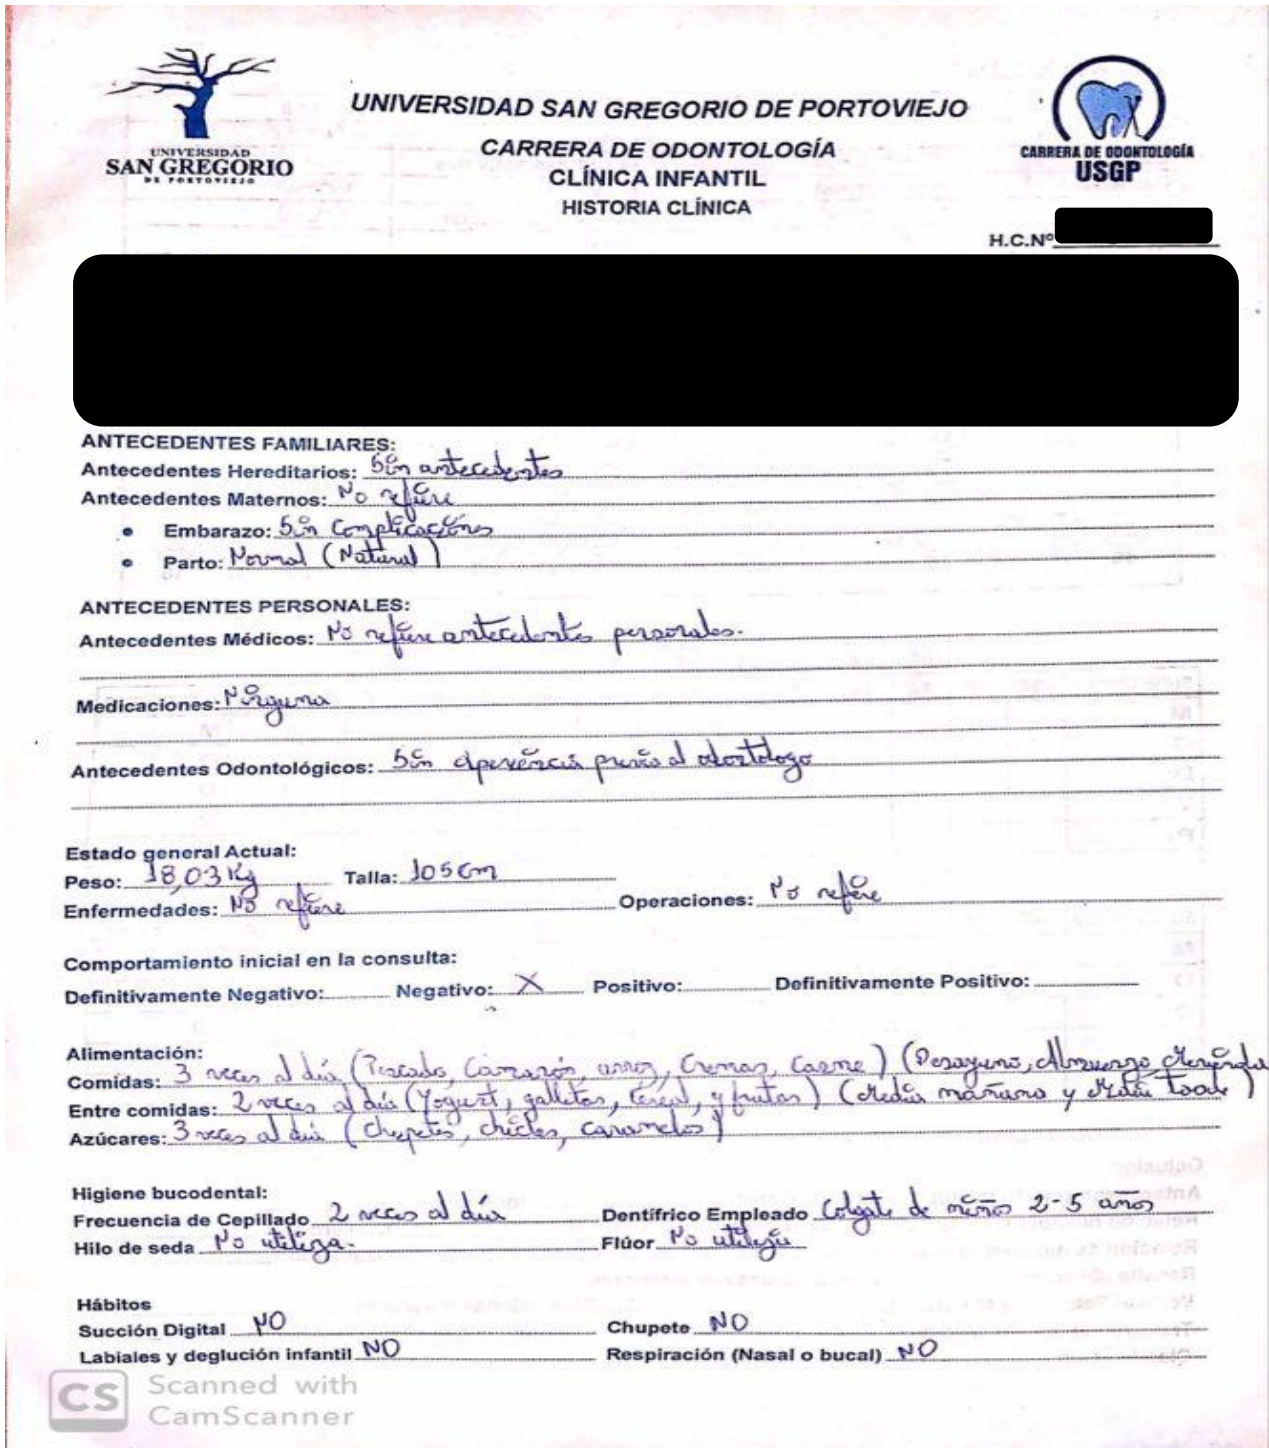 UNIVERSIDAD
SAN GREGORIO
DE PORTOVIEJO
UNIVERSIDAD SAN GREGORIO DE PORTOVIEJO
CARRERA DE ODONTOLOGÍA
CLÍNICA INFANTIL
HISTORIA CLÍNICA
CARRERA DE ODONTOLOGÍA
USGP
H.C.Nº
ANTECEDENTES FAMILIARES:
Antecedentes Hereditarios: Sin antecedentes
Antecedentes Maternos: No refiere
• Embarazo: Sin Complicaciones
• Parto: Normal (Natural)
ANTECEDENTES PERSONALES:
Antecedentes Médicos: No refiere antecedentes personales.
Medicaciones: Ninguna
Antecedentes Odontológicos: Sin experiencia previa al odontólogo
Estado general Actual:
Peso: 18,03 Kg Talla: 105 cm
Enfermedades: No refiere Operaciones: No refiere
Comportamiento inicial en la consulta:
Definitivamente Negativo: Negativo: X Positivo: Definitivamente Positivo:
Alimentación:
Comidas: 3 veces al día (Pescado, Camarón, arroz, Cremas, Carne) (Desayuno, Almuerzo, Merienda
Entre comidas: 2 veces al día (Yogurt, galletas, Cereal, y frutas) (Media mañana y Media tarde)
Azúcares: 3 veces al día (chupetes, chicles, caramelos)
Higiene bucodental:
Frecuencia de Cepillado 2 veces al día Dentífrico Empleado Colgate de niños 2-5 años
Hilo de seda No utiliza. Flúor No utiliza
Hábitos
Succión Digital NO Chupete NO
Labiales y deglución infantil NO Respiración (Nasal o bucal) NO
CS Scanned with
CamScanner